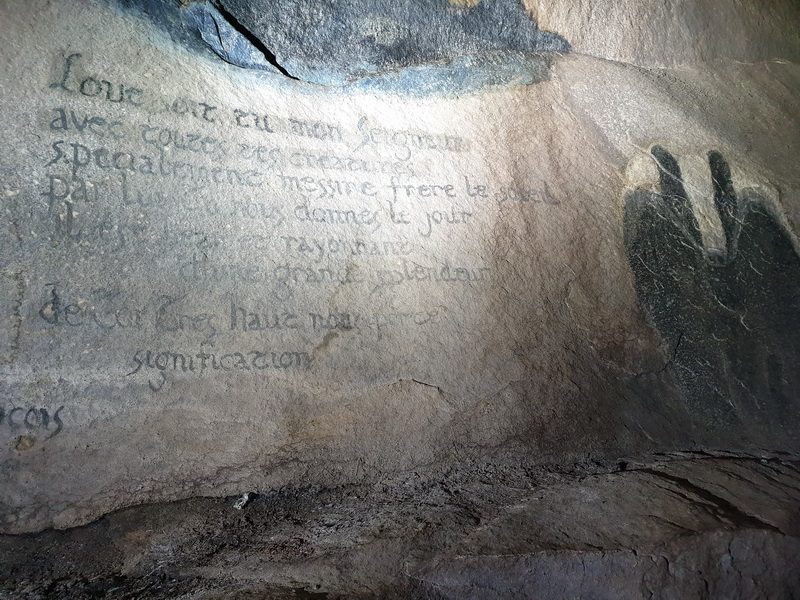 Loué soit tu mon Seigneur
avec toutes tes creatures
specialement messire frere le soleil
par lui tu nous donnes le jour
il est et rayonnant
d'une grande splendeur
de toi Tres haut nous porte
signification